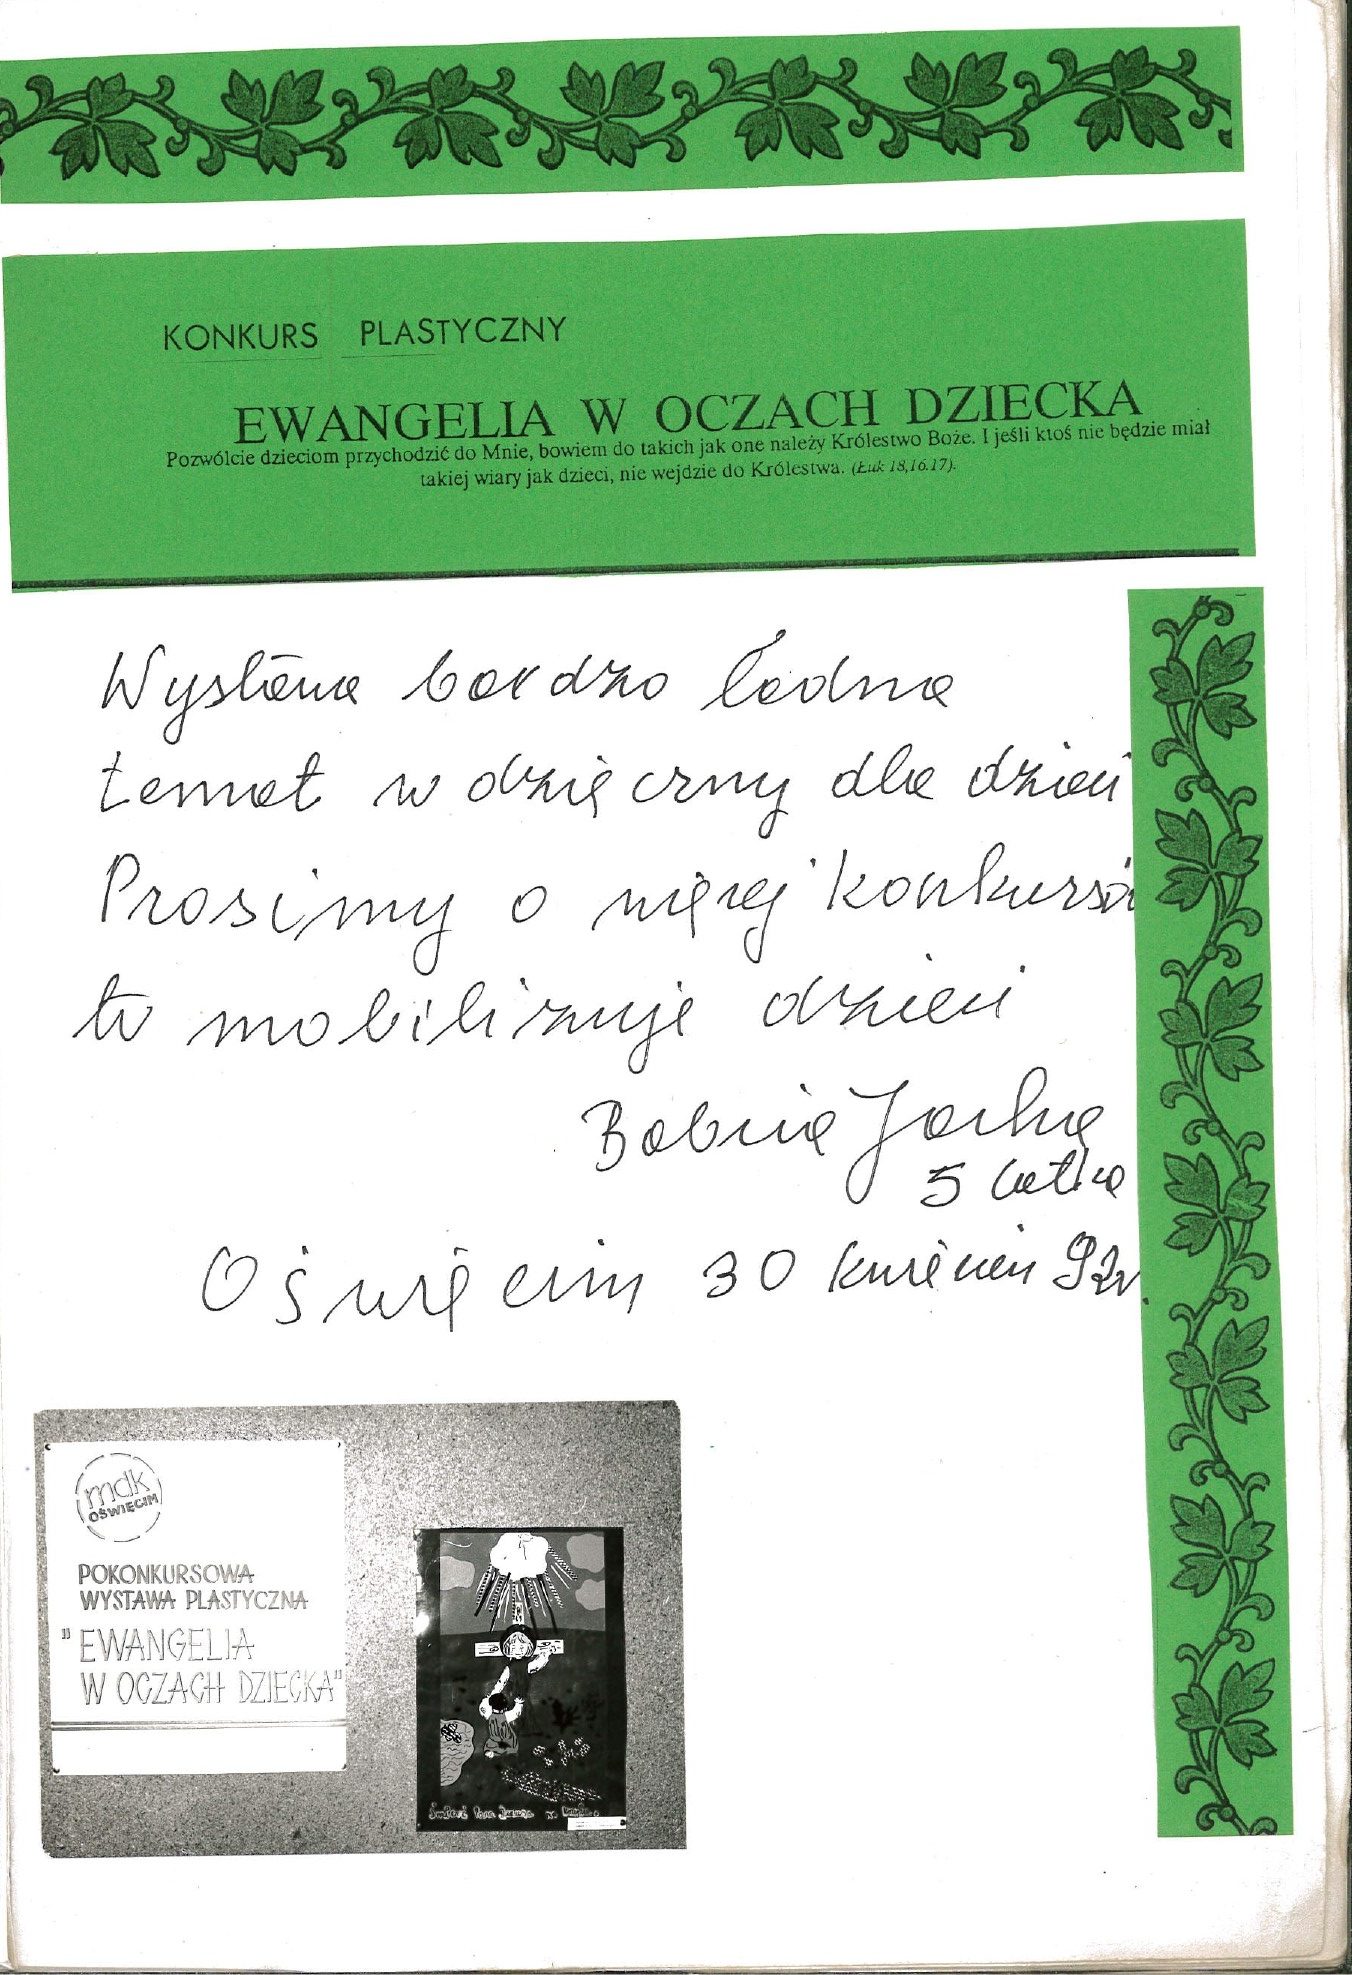 KONKURS PLASTYCZNY
EWANGELIA W OCZACH DZIECKA
Pozwólcie dzieciom przychodzić do Mnie, bowiem do takich jak one należy Królestwo Boże. I jeśli ktoś nie będzie miał
takiej wiary jak dzieci, nie wejdzie do Królestwa. (Łuk 18,16.17).
Wystawa bardzo ładna
temat wdzięczny dla dzieci
Prosimy o więcej konkursó
to mobilizuje dzieci
Babcia Jacka
5 latka
Oświęcim 30 kwiecień 92r.
mdk
OŚWIĘCIM
POKONKURSOWA
WYSTAWA PLASTYCZNA
"EWANGELIA
W OCZACH DZIECKA"
Śmierć Pana Jezusa na